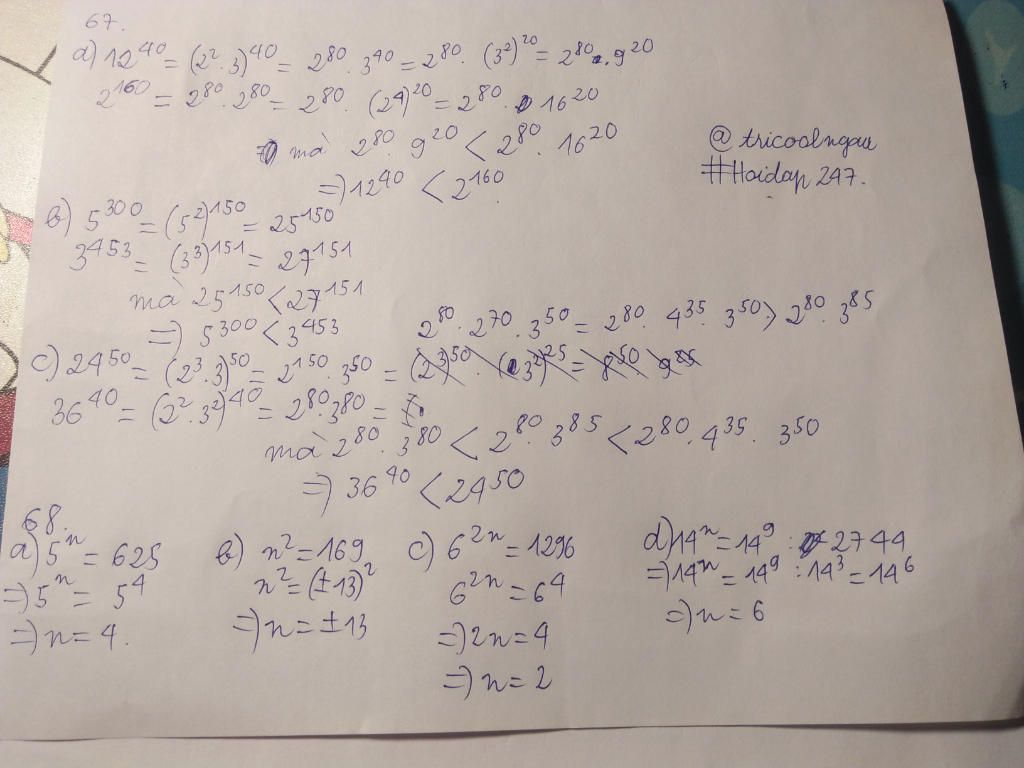 67.
a) 12^40 = (2^2 . 3)^40 = 2^80 . 3^40 = 2^80 . (3^2)^20 = 2^80 . 9^20
2^160 = 2^80 . 2^80 = 2^80 . (2^4)^20 = 2^80 . 16^20
mà 2^80 . 9^20 < 2^80 . 16^20
=) 12^40 < 2^160.
@ tricoolngau
#Hoidap 247.
b) 5^300 = (5^2)^150 = 25^150
3^453 = (3^3)^151 = 27^151
mà 25^150 < 27^151
=) 5^300 < 3^453
2^80 . 2^70 . 3^50 = 2^80 . 4^35 . 3^50 > 2^80 . 3^85
c) 24^50 = (2^3 . 3)^50 = 2^150 . 3^50 = (2^3)^50 . (3^2)^25 = 8^50 9^25
36^40 = (2^2 . 3^2)^40 = 2^80 . 3^80 =
mà 2^80 . 3^80 < 2^80 . 3^85 < 2^80 . 4^35 . 3^50
=) 36^40 < 24^50
68.
a) 5^n = 625
=) 5^n = 5^4
=) n = 4.
b) n^2 = 169
n^2 = (±13)^2
=) n = ±13
c) 6^2n = 1296
6^2n = 6^4
=) 2n = 4
=) n = 2
d) 14^n = 14^9 : 2744
=) 14^n = 14^9 : 14^3 = 14^6
=) n = 6